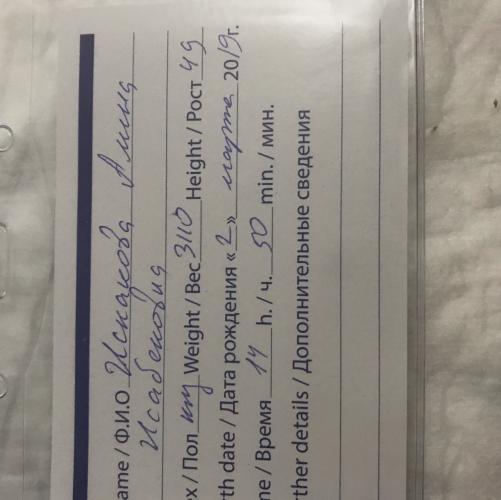 ame / Ф.И.О Искакова Амина
Исабековна
x / Пол Weight / Вес 3110 Height / Рост 49
th date / Дата рождения «2» марта 2019г.
ne / Время 14 h. / ч. 50 min. / мин.
rther details / Дополнительные сведения